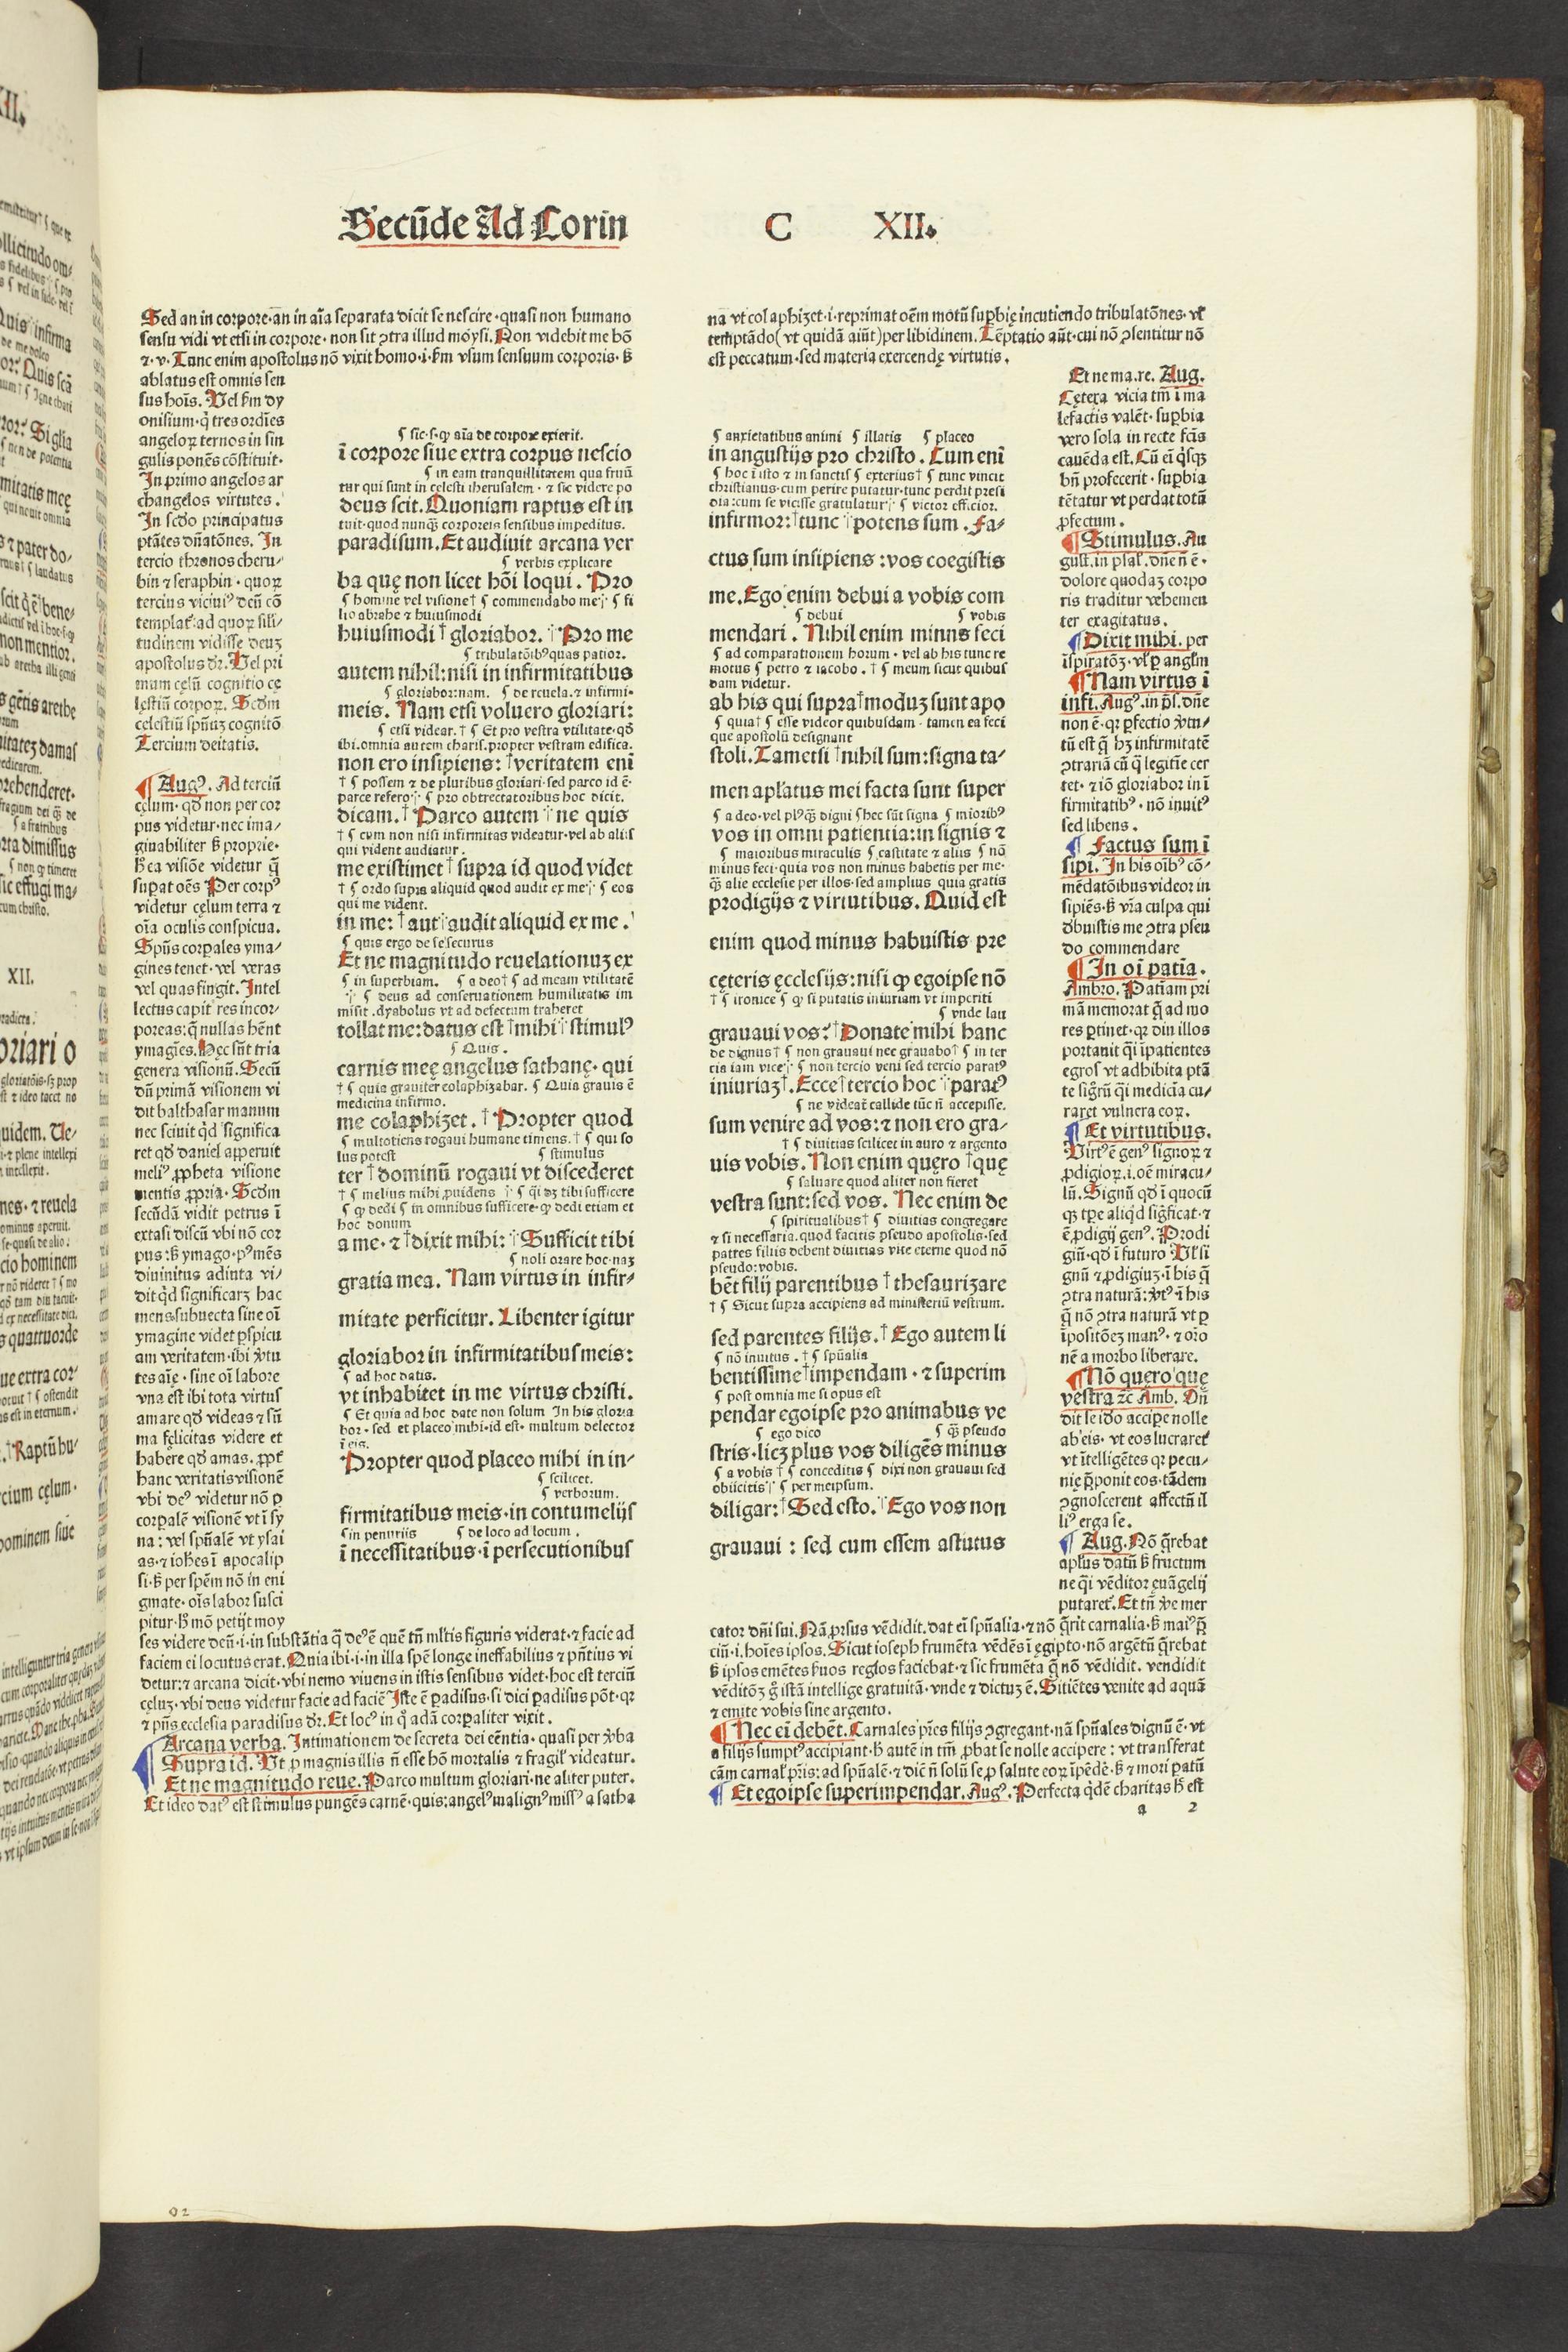 Secūde Ad Corin C XII.
Sed an in corpore·an in aīa separata dicit se nescire·quasi non humano
sensu vidi vt etsi in corpore·non sit ꝯtra illud moysi. Non videbit me hō
⁊·v·Tunc enim apostolus nō vixit homo·i·ẜm vsum sensuum corporis·ẜ
ablatus est omnis sen
sus hoīs. Vel ẜm dy
onisium·q̇ tres ordīes
angeloꝝ ternos in sin
gulis ponēs cōstituit·
In primo angelos ar
changelos virtutes.
In scd̄o principatus
ptātes dn̄atōnes. In
tercio thronos cheru/
bin ⁊ seraphin·quoꝝ
tercius viciniꝰ deū cō
templat᷑·ad quoꝝ sili/
tudinem vidisse deuꝫ
apostolus dr̄. Vel pri
mum cęlū cognitio cę
lęstiū corpoꝝ. Scd̄m
celestiū spn̄uꝫ cognitō
Tercium deitatis.
¶ Augꝰ. Ad terciū
cęlum·qd̄ non per cor
pus videtur·nec ima/
ginabiliter ẜ proprie·
H̄ ea visiōe videtur q̄
supat oēs Per corpꝰ
videtur cęlum terra ⁊
oīa oculis conspicua.
Spūs corꝑales yma/
gines tenet·vel veras
vel quas fingit. Intel
lectus capit res incor/
poreas:q̄ nullas hēnt
ymagīes. Hęc sn̄t tria
genera visionū. Secū
dū primā visionem vi
dit balthasar manum
nec sciuit qd̄ significa
ret qd̄ daniel aꝑeruit
meliꝰ ꝓpheta visione
mentis ꝓpria·Scd̄m
secūdā vidit petrus ī
extasi discū vbi nō cor
pus:ẜ ymago·pꝰ mēs
diuinitus adiuta vi/
dit qd̄ significarꝫ hac
mens subuecta sine oī
ymagine videt ꝑspicu
am veritatem·ibi v̇tu
tes aīę·sine oī labore
vna est ibi tota virtus
amare qd̄ videas ⁊ sū
ma fęlicitas videre et
habere qd̄ amas. ꝓpt᷑
hanc veritatis visionē
vbi deꝰ videtur nō ꝑ
corꝑalē visionē vt ī sy
na: vel spn̄alē vt ysai
as·⁊ ioh̄es ī apocalip
si·ẜ per spēm nō in eni
gmate·oīs labor susci
pitur·h̄ mō petijt moy
ses videre deū·i·in substātia q̄ deꝰ ē quē tn̄ ml̄tis figuris viderat·⁊ facie ad
faciem ei locutus erat. Quia ibi·i·in illa spē longe ineffabilius ⁊ pn̄tius vi
detur:⁊ arcana dicit·vbi nemo viuens in istis sensibus videt·hoc est terciū
cęluꝫ·vbi deus videtur facie ad faciē Iste ē ꝑadisus·si dici ꝑadisus pōt·qꝛ
⁊ pn̄s ecclesia paradisus dr̄. Et locꝰ in q̊ adā corꝑaliter vixit.
Arcana verba. Intimationem de secreta dei eēntia·quasi per v̇ba
Supra id. Vt ꝓ magnis illis n̄ esse hō mortalis ⁊ fragil᷑ videatur.
Et ne magnitudo reue. Parco multum gloriari·ne aliter puter.
Et ideo datꝰ est stimulus pungēs carnē·quis:angelꝰ malignꝰ missꝰ a satha
¶ sic·s·ꝙ aīa de corpore exierit.
ī corpore siue extra corpus nescio
¶ in eam tranquillitatem qua fruū
tur qui sunt in celesti iherusalem·⁊ sic videre po
deus scit. Quoniam raptus est in
tuit·quod nunq̄ corporeis sensibus impeditus.
paradisum. Et audiuit arcana ver
¶ verbis explicare
ba quę non licet hōi loqui. Pro
¶ homine vel visione† ¶ commendabo me⁝ ¶ fi
lio abrahe ⁊ huiusmodi
huiusmodi †gloriabor. ⁝Pro me
¶ tribulatōībꝰ quas patior.
autem nihil:nisi in infirmitatibus
¶ gloriabor:nam. ¶ de reuela.⁊ infirmi·
meis. Nam etsi voluero gloriari:
¶ etsi videar.† ¶ Et pro vestra vtilitate·qd̄
ibi.omnia autem charis.propter vestram edifica.
non ero insipiens: †veritatem enī
† ¶ possem ⁊ de pluribus gloriari·sed parco id ē·
parce refero⁝ ¶ pro obtrectatoribus hoc dicit.
dicam.†Parco autem ⁝ne quis
† ¶ cum non nisi infirmitas videatur·vel ab aliis
qui vident audiatur.
me existimet †supra id quod videt
† ¶ ordo supra aliquid quod audit ex me⁝ ¶ eos
qui me vident.
in me: †aut⁝audit aliquid ex me.
¶ quis ergo de se securus
Et ne magnitudo reuelationuꝫ ex
¶ in superbiam. ¶ a deo† ¶ ad meam vtilitatē
⁝ ¶ deus ad conseruationem humilitatis im
misit.dyabolus vt ad defectum traheret
tollat me:datus est †mihi ⁝stimulꝰ
¶ Quis.
carnis meę angelus sathanę· qui
† ¶ quia grauiter colaphizabar. ¶ Quia grauis ē
medicina infirmo.
me colaphizet. †Propter quod
¶ multotiens rogaui humane timens.† ¶ qui so
lus potest ¶ stimulus
ter †dominū rogaui vt discederet
† ¶ melius mihi ꝓuidens ⁝ ¶ q̇i dꝫ tibi sufficere
¶ ꝙ dedi ¶ in omnibus sufficere·ꝙ dedi etiam et
hoc donum
a me·⁊ †dixit mihi: ⁝Sufficit tibi
¶ noli orare hoc·naꝫ
gratia mea. Nam virtus in infir/
mitate perficitur. Libenter igitur
gloriabor in infirmitatibus meis:
¶ ad hoc datis.
vt inhabitet in me virtus christi.
¶ Et quia ad hoc date non solum In his gloria
bor·sed et placeo mihi·id est·multum delector
ī eis.
Propter quod placeo mihi in in/
¶ scilicet.
¶ verborum.
firmitatibus meis·in contumelijs
¶ in penuriis ¶ de loco ad locum.
ī necessitatibus·ī persecutionibus
na vt colaphizet·i·reprimat oēm motū suꝑbię incutiendo tribulatōnes·vl᷑
temptādo(vt quidā aiūt)per libidinem. Tēptatio aūt·cui nō ꝯsentitur nō
est peccatum·sed materia exercendę virtutis.
¶ anxietatibus animi ¶ illatis ¶ placeo
in angustijs pro christo. Cum enī
¶ hoc ī isto ⁊ in sanctis ¶ exterius† ¶ tunc vincit
christianus·cum perire putatur·tunc perdit presi
dia:cum se vicisse gratulatur⁝ ¶ victor efficior.
infirmor:†tunc ⁝potens sum. Fa/
ctus sum insipiens:vos coegistis
me. Ego enim debui a vobis com
¶ debui ¶ vobis
mendari. Nihil enim minus feci
¶ ad comparationem horum·vel ab his tunc re
motus ¶ petro ⁊ iacobo.† ¶ meum sicut quibus
dam videtur.
ab his qui supra†moduꝫ sunt apo
¶ quia† ¶ esse videor quibusdam·tamen ea feci
que apostolū designant
stoli. Tametsi †nihil sum:signa ta/
men apl̄atus mei facta sunt super
¶ a deo·vel plꝰq̄ digni ¶ hec sūt signa ¶ miorib᷒
vos in omni patientia:in signis ⁊
¶ maioribus miraculis ¶ castitate ⁊ aliis ¶ nō
minus feci·quia vos non minus habetis per me·
q̄ alie ecclesie per illos·sed amplius quia gratis
prodigijs ⁊ virtutibus. Quid est
enim quod minus habuistis pre
cęteris ęcclesijs:nisi ꝙ ego ipse nō
† ¶ ironice ¶ ꝙ si putatis iniuriam vt imperiti
¶ vnde lau
grauaui vos? †Donate mihi hanc
de dignus† ¶ non grauaui nec grauabo† ¶ in ter
cia iam vice⁝ ¶ non tercio veni sed tercio paratꝰ
iniuriaꝫ†. Ecce†tercio hoc ⁝paratꝰ
¶ ne videar callide tūc n̄ accepisse.
sum venire ad vos:⁊ non ero gra/
† ¶ diuitias scilicet in auro ⁊ argento
uis vobis. Non enim quęro †quę
¶ saluare quod aliter non fieret
vestra sunt:sed vos. Nec enim de
¶ spiritualibus† ¶ diuitias congregare
⁊ si necessaria.quod facitis pseudo apostolis·sed
patres filiis debent diuitias vite eterne quod nō
pseudo:vobis.
bēt filij parentibus †thesaurizare
† ¶ Sicut supra accipiens ad ministeriū vestrum.
sed parentes filijs.†Ego autem li
¶ nō inuitus.† ¶ spūalia
bentissime†impendam·⁊ superim
¶ post omnia me si opus est
pendar ego ipse pro animabus ve
¶ ego dico ¶ q̄ pseudo
stris·licꝫ plus vos diligēs minus
¶ a vobis † ¶ conceditis ¶ dixi non grauaui sed
obiicitis⁝ ¶ per meipsum.
diligar:†Sed esto. ⁝Ego vos non
grauaui: sed cum essem astutus
Et ne ma.re. Aug.
Cętera vicia tm̄ ī ma
lefactis valēt·suꝑbia
vero sola in recte fc̄is
cauēda est. Cū eī q̇sqꝫ
bn̄ profecerit·suꝑbia
tētatur vt perdat totū
ꝓfectum.
¶ Stimulus. Au
gust.in psal᷑.dn̄e n̄ ē·
dolore quodaꝫ corpo
ris traditur vehemen
ter exagitatus.
¶ Dixit mihi. per
īspiratōꝫ·vl᷑ ꝑ angl̄m
¶ Nam virtus ī
infi. Augꝰ.in p̄s.dn̄e
non ē·qꝛ ꝑfectio v̇tu/
tū est q̄ hꝫ infirmitatē
ꝯtrariā cū q̄ legitīe cer
tet·⁊ iō gloriabor in ī
firmitatibꝰ·nō inuitꝰ
sed libens.
¶ Factus sum ī
sipi. In his oībꝰ cō/
mēdatōibus videor in
sipiēs·ẜ vr̄a culpa qui
d̄buistis me ꝯtra pseu
do commendare
¶ In oī patīa.
Ambro. Patīam pri
mā memorat q̄ ad mo
res ꝑtinet·qꝛ diu illos
portauit q̇i īpatientes
egros vt adhibita ptā
te sigr̄ū q̇i medicīa cu/
raret vulnera eoꝝ.
¶ Et virtutibus.
Virtꝰ ē genꝰ signoꝝ ⁊
ꝓdigioꝝ.i.oē miracu/
lū. Signū qd̄ ī quocū
qꝫ tꝑe aliqd̄ sig̊ficat·⁊
ē ꝓdigij genꝰ. Prodi
giū·qd̄ ī futuro Vl᷑ si
gnū ⁊ ꝓdigiuꝫ·ī his q̄
ꝯtra naturā:v̇tꝰ ī his
q̄ nō ꝯtra naturā vt ꝑ
īpositōeꝫ manꝰ·⁊ orō
nē a morbo liberare.
¶ Nō quero quę
vestra ⁊c̄ Amb. Dn̄
dit se iō accipe nolle
ab eis·vt eos lucraret᷑
vt ītelligētes qꝛ pecu/
nię p̄ponit eos·tādem
ꝯgnoscerent affectū il
liꝰ erga se.
¶ Aug. Nō q̄rebat
apl̄us datū ẜ fructum
ne q̇i vēditor euāgelij
putaret᷑. Et tn̄ v̇e mer
cator dn̄i sui. Nā ꝓrsus vēdidit.dat eī spn̄alia·⁊ nō q̄rit carnalia·ẜ maiꝰ p̄
ciū·i.hoīes ipsos. Sicut ioseph frumēta vēdēs ī ęgipto·nō argētū q̄rebat
ẜ ipsos emētes ẜuos regios faciebat·⁊ sic frumēta q̄ nō vēdidit. vendidit
vēditōꝫ g̊ istā intellige gratuitā·vnde ⁊ dictuꝫ ē. Sitiētes venite ad aquā
⁊ emite vobis sine argento.
¶ Nec ei debēt. Carnales pr̄es filijs ꝯgregant·nā spn̄ales dignū ē·vt
a filijs sumptꝰ accipiant·h̄ autē in tm̄ ꝓbat se nolle accipere: vt transferat
cām carnal᷑ pr̄is:ad spn̄alē·⁊ dic̄ n̄ solū se ꝓ salute eoꝝ īpēdē·ẜ ⁊ mori patū
¶ Et ego ipse superimpendar. Augꝰ. Perfecta q̇dē charitas h̄ est
a 2
02